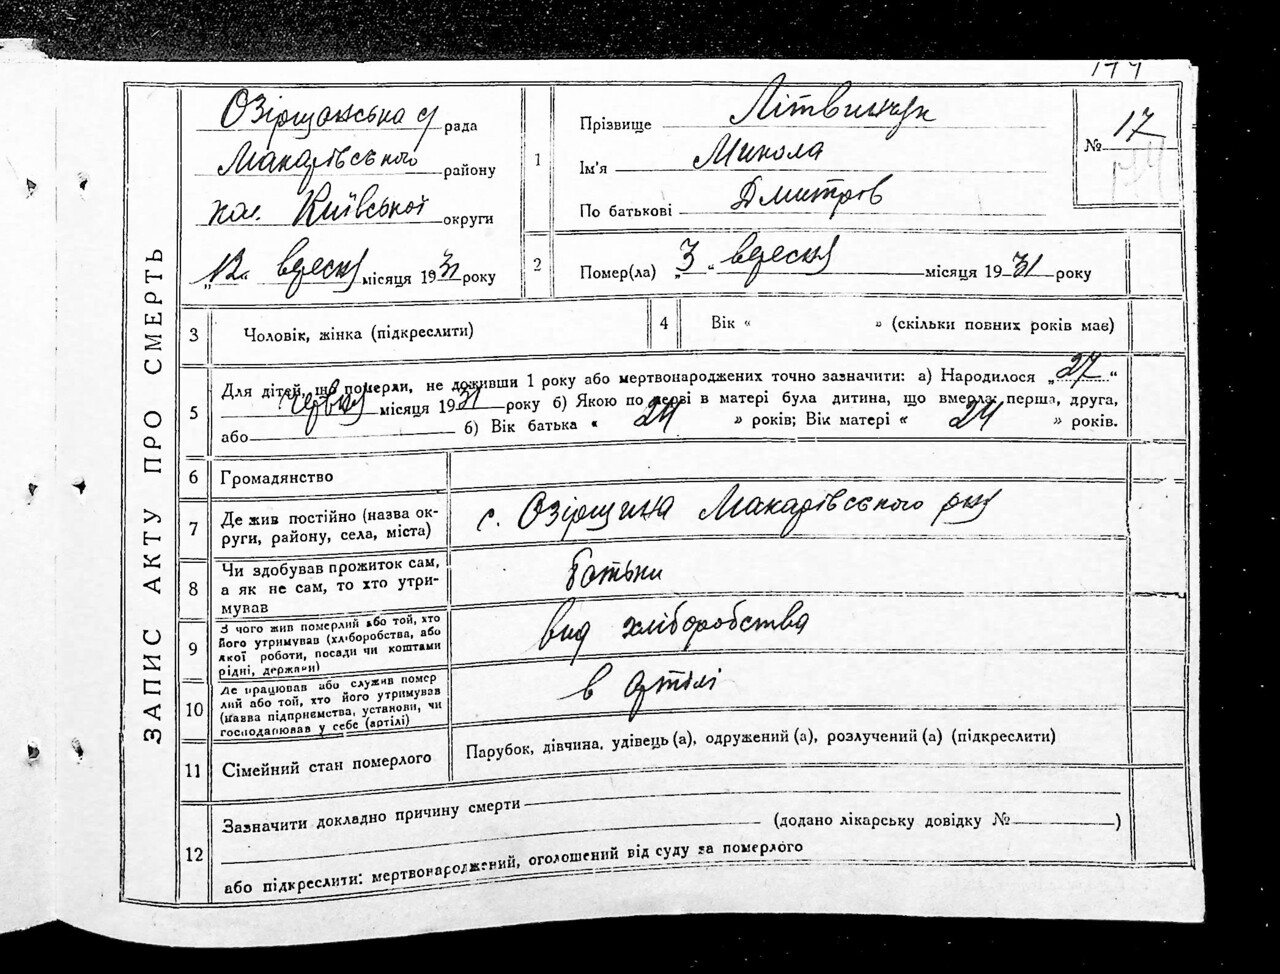 177
ЗАПИС АКТУ ПРО СМЕРТЬ
Озірщанська с/ рада
Макарівського району
Київської округи
„12“ вересня місяця 1931 року
1
Прізвище Літвинчук
Ім'я Микола
По батькові Дмитров
№ 17
2
Помер(ла) „3“ вересня місяця 1931 року
3 Чоловік, жінка (підкреслити)
4 Вік « » (скільки повних років має)
5
Для дітей, що померли, не доживши 1 року або мертвонароджених точно зазначити: а) Народилося „27“
червня місяця 1931 року б) Якою по черзі в матері була дитина, що вмерла: перша, друга,
або б) Вік батька « 24 » років; Вік матері « 24 » років.
6 Громадянство
7
Де жив постійно (назва ок-
руги, району, села, міста)
с. Озірщина Макарівського р-ну
8
Чи здобував прожиток сам,
а як не сам, то хто утри-
мував
батьки
9
З чого жив померлий або той, хто
його утримував (хліборобства, або
якої роботи, посади чи коштами
рідні, держави)
від хліборобства
10
Де працював або служив помер
лий або той, хто його утримував
(назва підприємства, установи, чи
господарював у себе (артілі)
в артілі
11 Сімейний стан померлого
Парубок, дівчина, удівець (а), одружений (а), розлучений (а) (підкреслити)
12
Зазначити докладно причину смерти
(додано лікарську довідку № )
або підкреслити: мертвонароджений, оголошений від суду за померлого